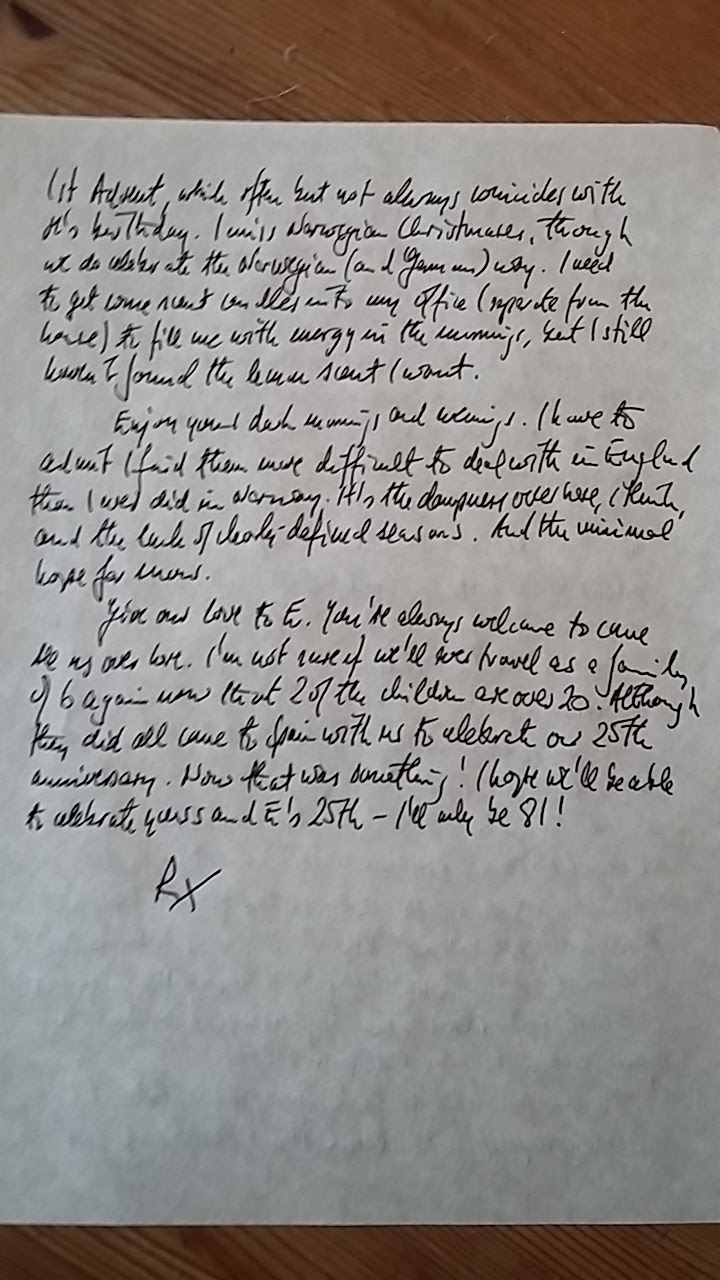 1st Advent, which often but not always coincides with
H's birthday. I miss Norwegian Christmases, though
we do celebrate the Norwegian (and German) way. I need
to get some scent candles into my office (separate from the
house) to fill me with energy in the mornings, but I still
haven't found the lemon scent I want.
Enjoy your dark mornings and evenings. I have to
admit I find them more difficult to deal with in England
than I ever did in Norway. It's the dampness over here, I think,
and the lack of clearly-defined seasons. And the minimal
hope for snow.
Give our love to E. You're always welcome to come
see us over here. I'm not sure if we'll ever travel as a family
of 6 again now that 2 of the children are over 20. Although
they did all come to Spain with us to celebrate our 25th
anniversary. Now that was something! I hope we'll be able
to celebrate yours and E's 25th – I'll only be 81!
RX